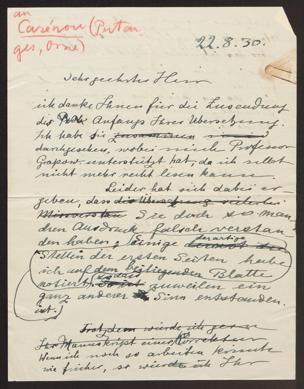 an
Cazérou (Putan
ges, Orne)
22.8.30.
Sehr geehrter Herr
ich danke Ihnen für die Zusendung
des Anfangs Ihrer Übersetzung.
Ich habe sie
durchgesehen, wobei mich Professor
Grapow unterstützt hat, da ich selbst
nicht mehr recht lesen kann.
Leider hat sich dabei er-
geben, dass die Übersetzung
Sie doch so man
chen Ausdruck falsch verstan
den haben; einige derartige
Stellen der ersten Seiten habe
ich auf dem beiliegenden Blatte
notiert; zuweilen ein
ganz anderer Sinn entstanden
ist.
Trotzdem würde ich gern
Ihr Manuskript einer Correktur
Wenn ich noch so arbeiten könnte
wie früher, so würde ich Ihr